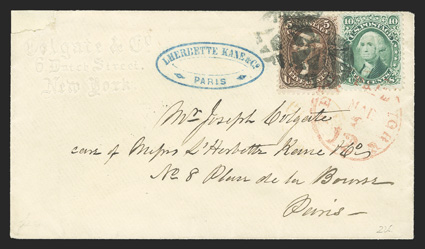 Colgate & Co
New York
LHERBETTE KANE & Co
PARIS
5
10
U.S. POSTAGE
Mr. Joseph Colgate
care of Messrs L'Herbette Kane & Co
No 8 Place de la Bourse
Paris